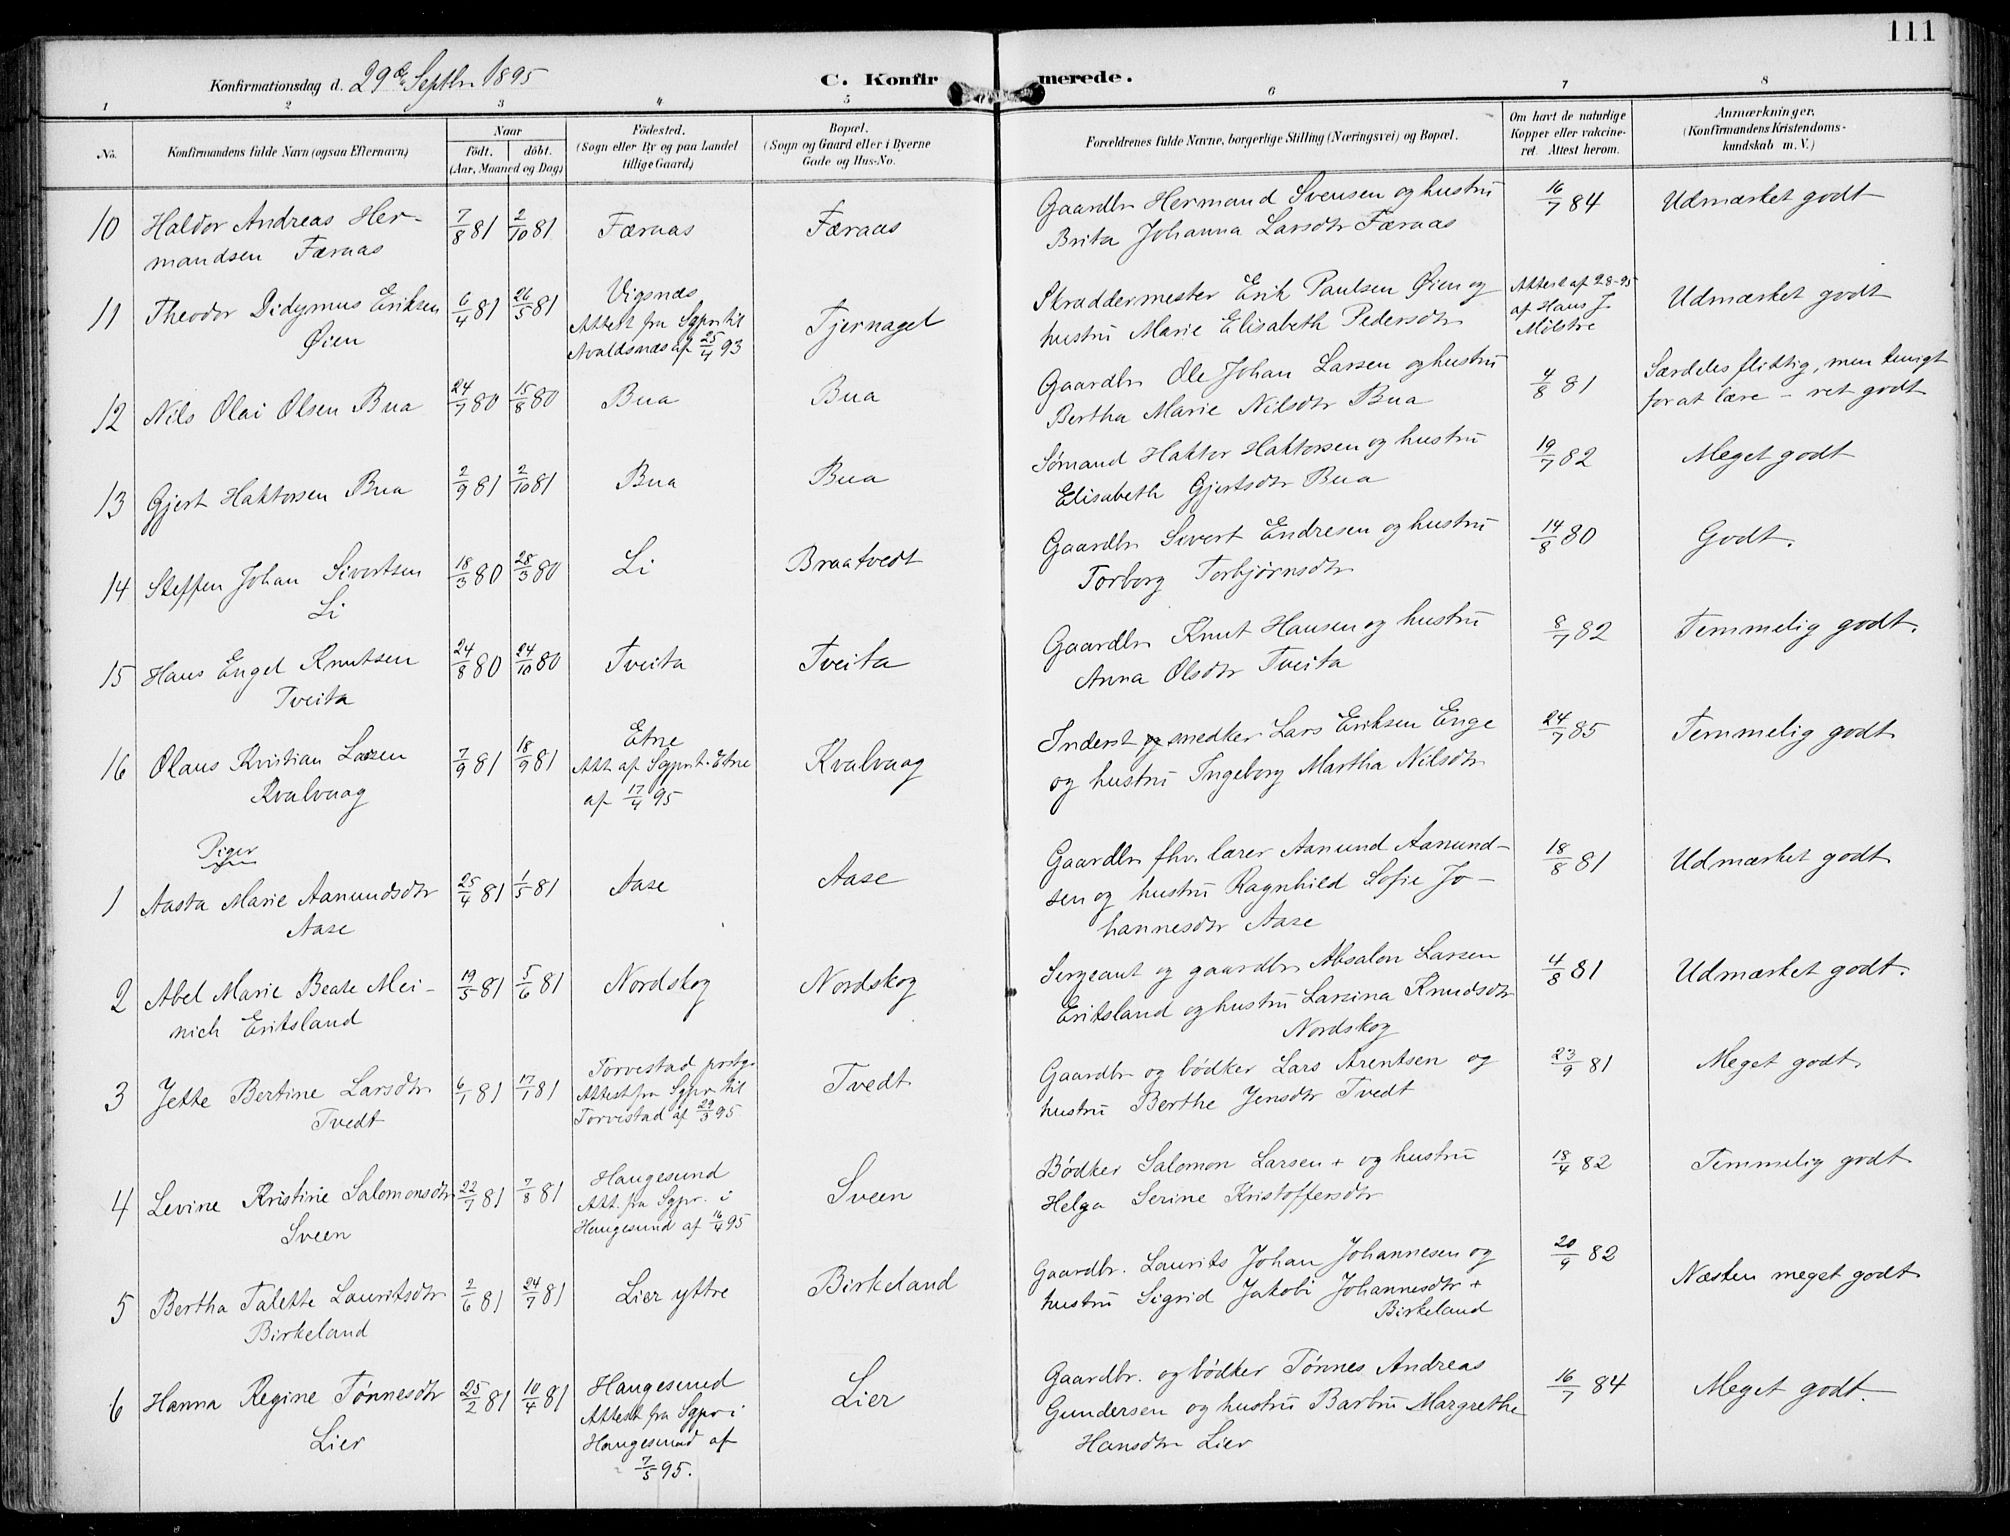 111
Konfirmationsdag d. 29de Septbr 1895
C. Konfirmerede.
1 2 3 4 5 6 7 8
No.
Konfirmandens fulde Navn (ogsaa Efternavn)
Naar
født. døbt.
(Aar, Maaned og Dag)
Fødested.
(Sogn eller By og paa Landet
tillige Gaard)
Bopæl.
(Sogn og Gaard eller i Byerne
Gade og Hus-No.
Forældrenes fulde Navne, borgerlige Stilling (Næringsvei) og Bopæl.
Om havt de naturlige
Kopper eller vakcine-
ret. Attest herom.
Anmærkninger.
(Konfirmandens Kristendoms-
kundskab m. V.)
10 Haldor Andreas Her- 7/8 81 2/10 81 Færaas Færaas Gaardbr Hermand Svensen og hustru 16/7 84 Udmærket godt
mandsen Færaas Brita Johanna Larsdtr Færaas
11 Theodor Didymus Eriksen 6/4 81 26/5 81 Vigsnæs Tjernagel Skræddermester Erik Paulsen Øien og Attest af 2 8-95 Udmærket godt
Øien Attest fra Sgpr. til hustru Marie Elisabeth Pedersdtr af Hans J.
Avaldsnæs af 25/4 93 Mølstre
12 Nils Olai Olsen Bua 24/7 80 15/8 80 Bua Bua Gaardbr Ole Johan Larsen og hustru 4/8 81 Særdeles flittig, men tungt
Bertha Marie Nilsdtr Bua for at lære - ret godt
13 Gjert Haktorsen Bua 2/9 81 2/10 81 Bua Bua Sømand Haktor Haktorsen og hustru 19/7 82 Meget godt
Elisabeth Gjertsdtr Bua
14 Steffen Johan Sivertsen 18/3 80 28/3 80 Li Braatvedt Gaardbr Sivert Endresen og hustru 14/8 80 Godt.
Li Torborg Torbjørnsdtr
15 Hans Engel Knutsen 24/8 80 24/10 80 Tveita Tveita Gaardbr Knut Hansen og hustru 8/7 82 Temmelig godt.
Tveita Anna Olsdtr Tveita
16 Olaus Kristian Larsen 7/9 81 18/9 81 Etne Kvalvaag Inderst og smedker Lars Eriksen Enge 24/7 85 Temmelig godt
Kvalvaag Att. af Sgpr. t. Etne og hustru Ingeborg Martha Nilsdtr
af 17/4 95
Piger
1 Aasta Marie Aanundsdtr 25/4 81 1/5 81 Aase Aase Gaardbr fhv. lærer Aanund Aanund- 18/8 81 Udmærket godt
Aase sen og hustru Ragnhild Sofie Jo-
hannesdtr Aase
2 Abel Marie Beate Mei- 19/5 81 5/6 81 Nordskog Nordskog Sergeant og gaardbr. Absalon Larsen 4/8 81 Udmærket godt.
nich Eritsland Eritsland og hustru Larsina Knudsdtr
Nordskog
3 Jette Bertine Larsdtr 6/1 81 17/1 81 Torvestad postg. Tvedt Gaardbr og bødker Lars Arentsen og 23/9 81 Meget godt.
Tvedt Attest fra Sgpr. til hustru Berthe Jensdtr Tvedt
Torvestad af 29/3 95
4 Levine Kristine Salomonsdtr 22/7 81 7/8 81 Haugesund Sveen Bødker Salomon Larsen + og hustru 18/4 82 Temmelig godt
Sveen Att. fra Sgpr. i Helga Serine Kristoffersdtr
Haugesund af 16/4 95
5 Bertha Talette Lauritsdtr 2/6 81 24/7 81 Lier yttre Birkeland Gaardbr. Laurits Johan Johannesen og 20/9 82 Næsten meget godt
Birkeland hustru Sigrid Jakobi Johannesdtr +
Birkeland
6 Hanna Regine Tønnesdtr 25/2 81 10/4 81 Haugesund Lier Gaardbr. og bødker Tønnes Andreas 16/7 84 Meget godt.
Lier Attest fra Sgpr i Gundersen og hustru Barbru Margrethe
Haugesund af Hansdtr Lier
7/5 95.